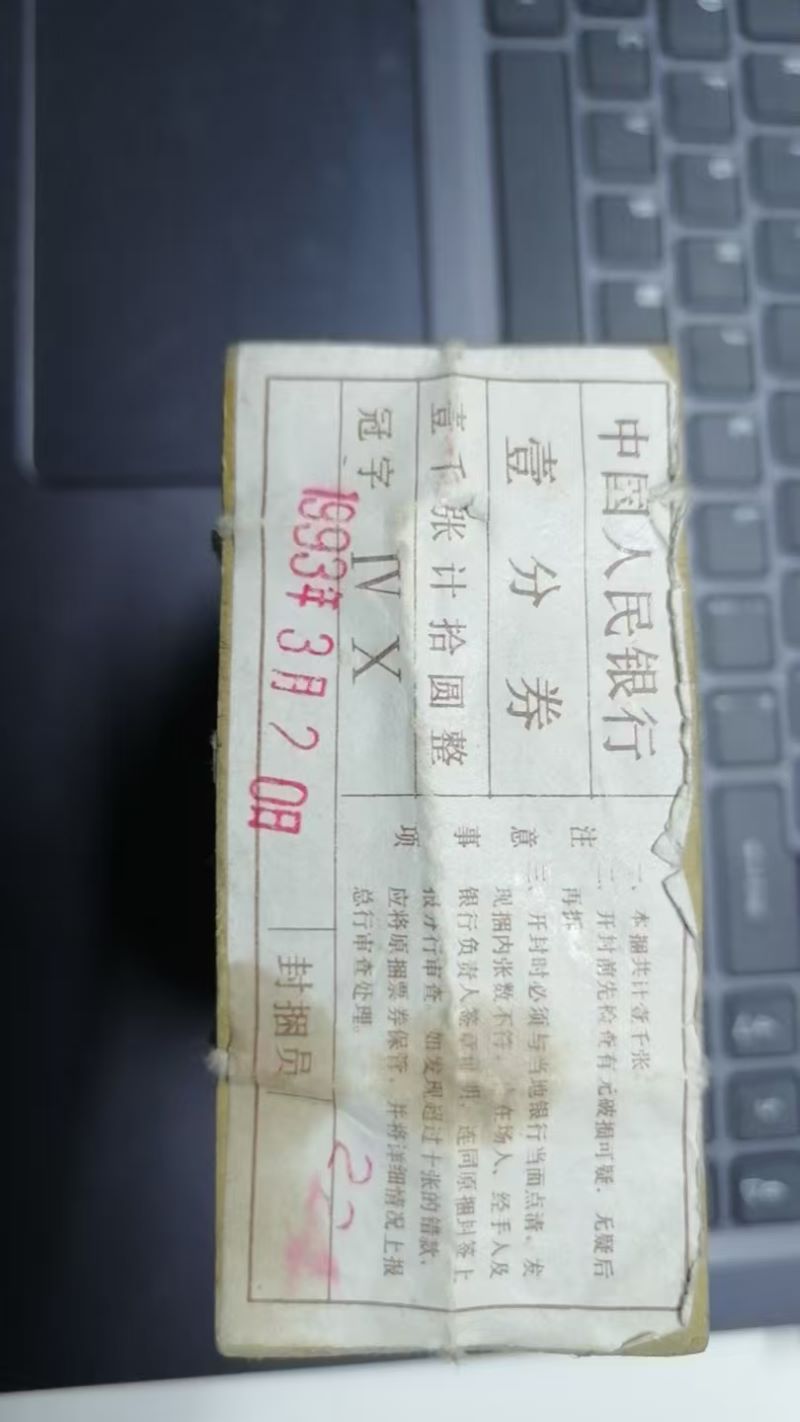 中国人民银行
壹分券
壹千张计拾圆整
冠字 IV X
1993年3月20日
封捆员
22
注意事项
一、本捆共计壹千张。
二、开封前先检查有无破损可疑，无疑后
再拆
三、开封时必须与当地银行当面点清，发
现捆内张数不符，在场人、经手人及
银行负责人签章证明，连同原捆封签上
报分行审查 如发现超过十张的错款，
应将原捆票券保管，并将详细情况上报
总行审查处理。